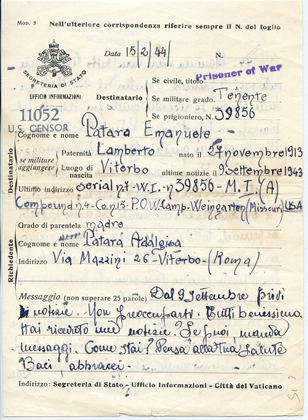 Mod. 3 Nell'ulteriore corrispondenza riferire sempre il N. del foglio
Data 15/2/44/
SEGRETERIA DI STATO
UFFICIO INFORMAZIONI
Prisoner of War
Destinatario
Se civile, titolo
Se militare grado. Tenente
Se prigioniero, N. 39856
11052
U.S. CENSOR
Cognome e nome Patara Emanuele
Destinatario
Paternità Lamberto nato il 24 novembre 1913
se militare aggiungere
Luogo di nascita Viterbo ultime notizie il 9 Settembre 1943
Ultimo indirizzo serial n: W.I. n 39856 - M.I. (A)
Compound n 4 - Co. n 15 - P.O.W. Camp - Weingarton (Missouri) USA
Richiedente
Grado di parentela madre
Cognome e nome Patara Adalgisa
Indirizzo Via Mazzini 26 - Viterbo (Roma)
Messaggio (non superare 25 parole) Dal 9 Settembre privi
notizie. Non preoccuparti. Tutti benissimo
Hai ricevuto mie notizie? Se puoi, manda
messaggi. Come stai? Pensa alla tua salute
Baci, abbracci.
Indirizzo: Segreteria di Stato - Ufficio Informazioni - Città del Vaticano